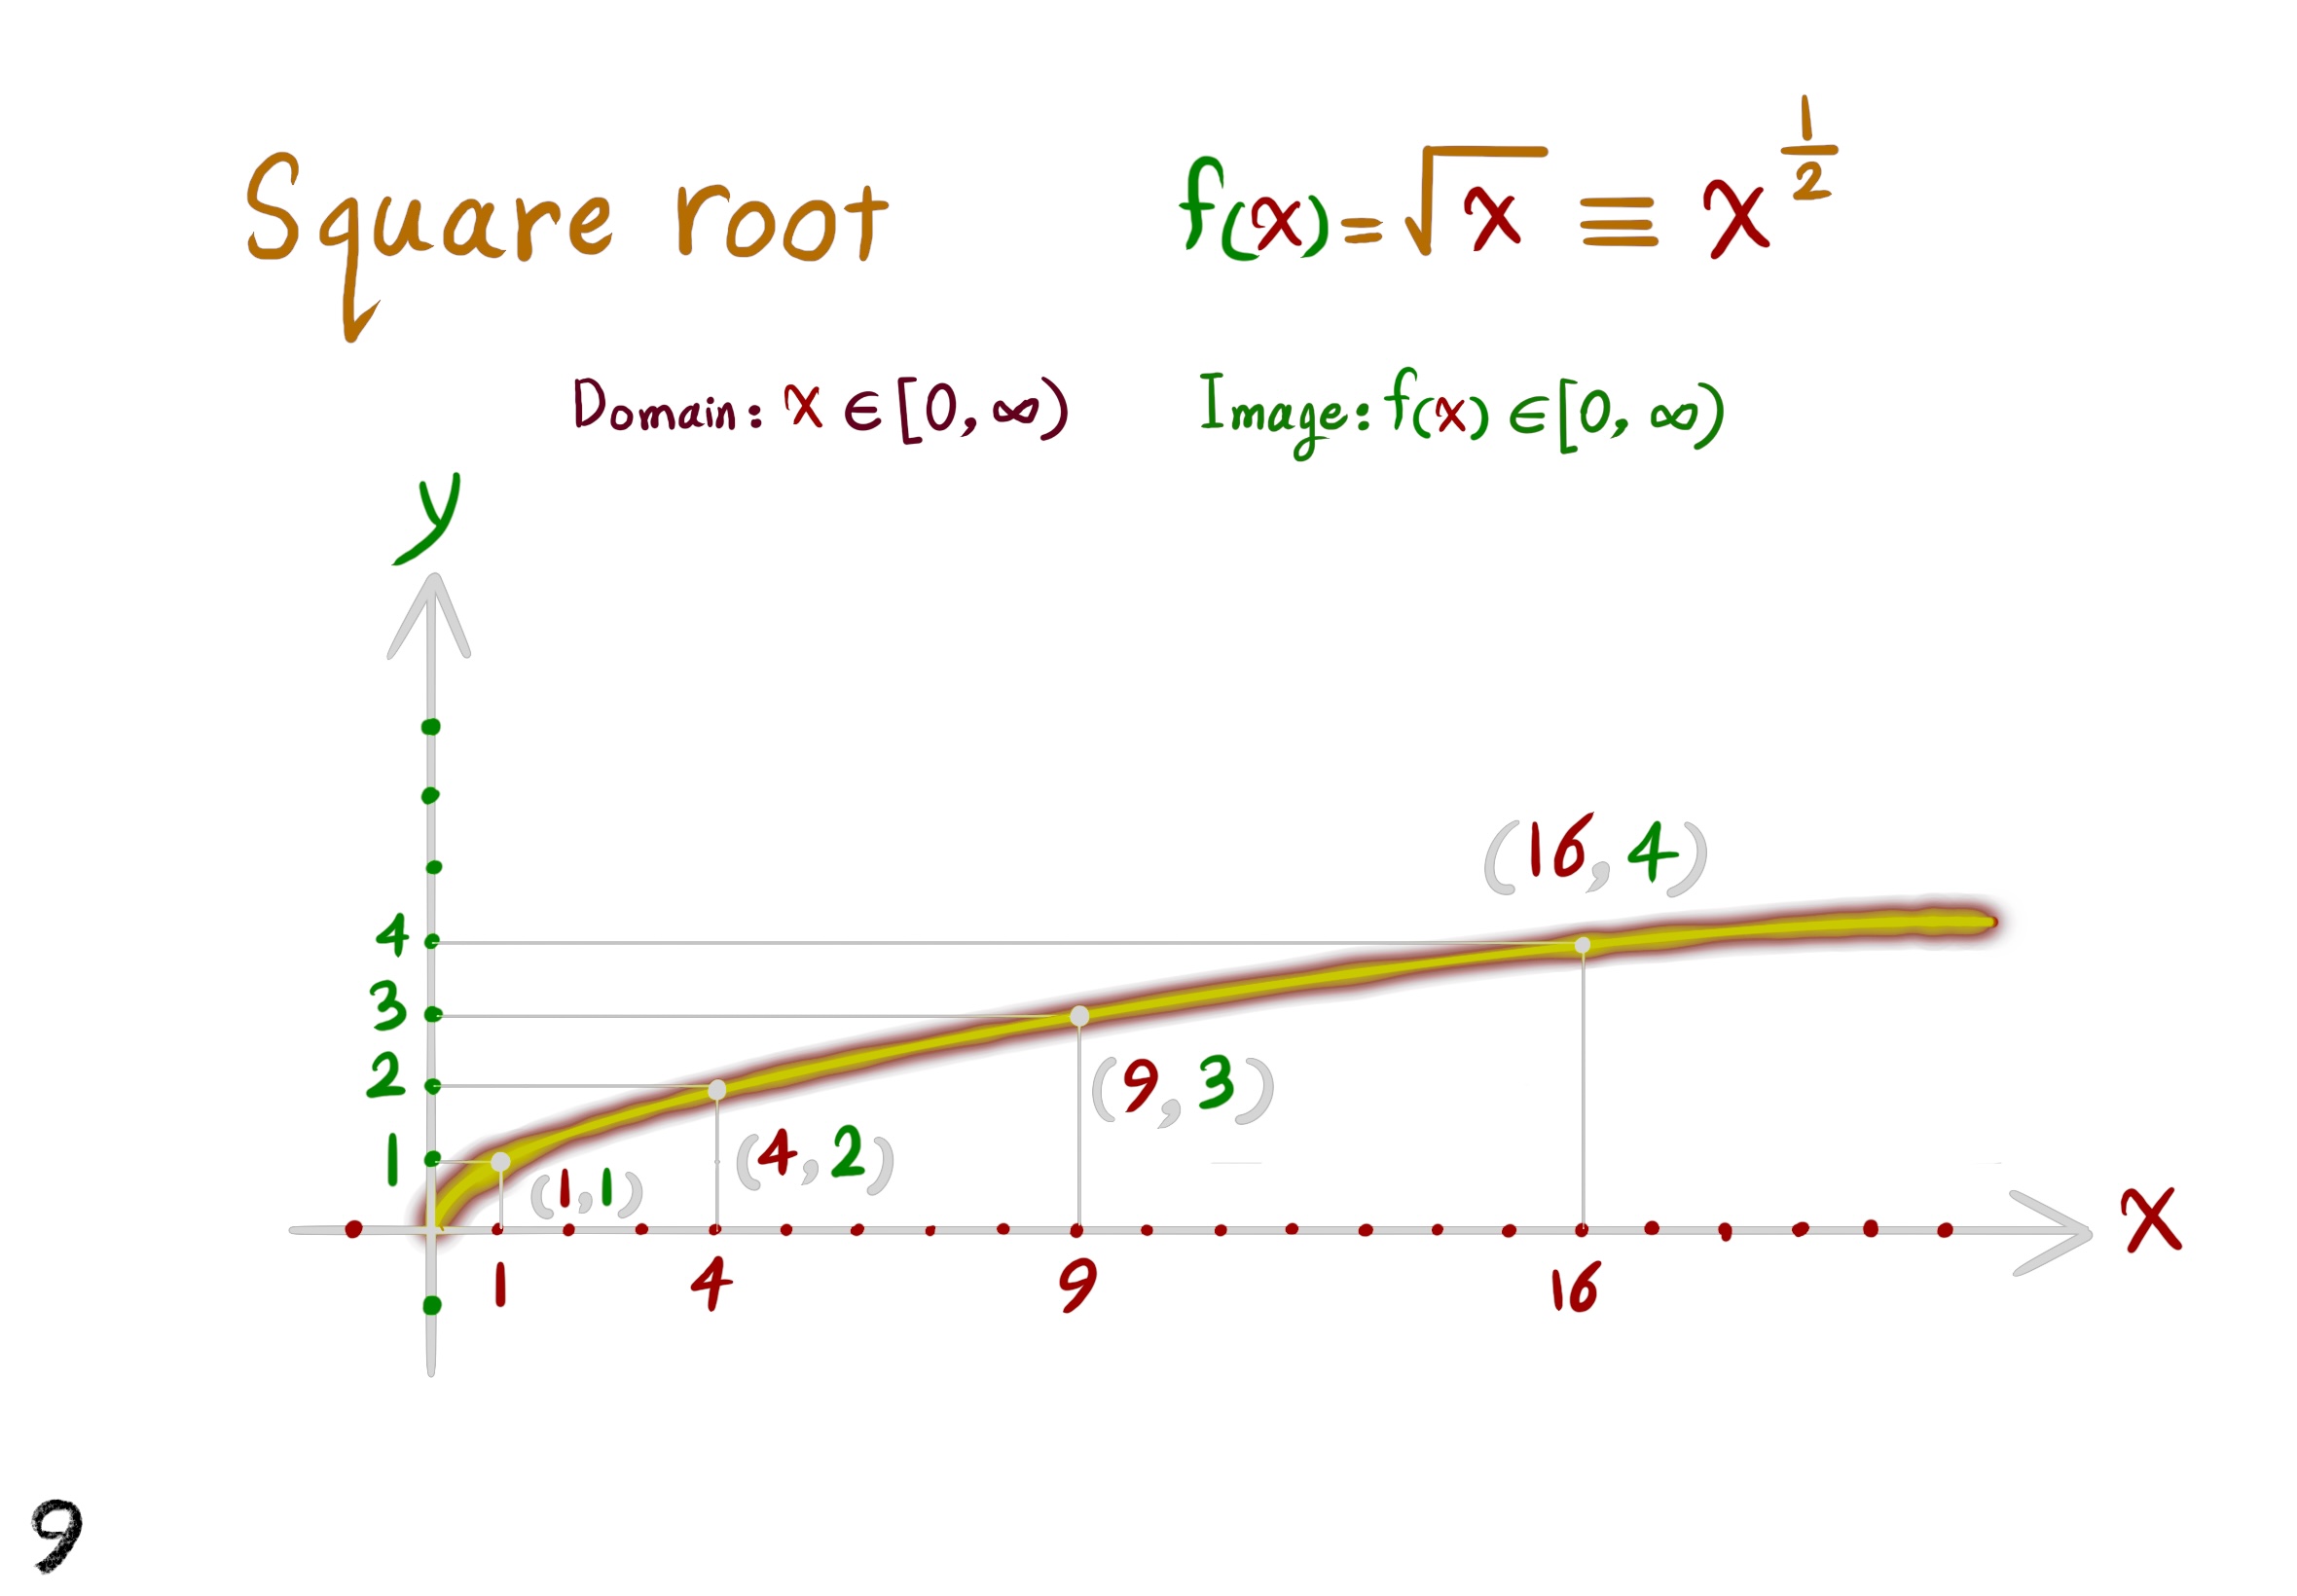 Square root
f(x)=√x ≡ x^(1/2)
Domain: x ∈ [0, ∞)
Image: f(x) ∈ [0, ∞)
y
(16, 4)
4
3
(9, 3)
2
(4, 2)
1
(1, 1)
x
1 4 9 16
9